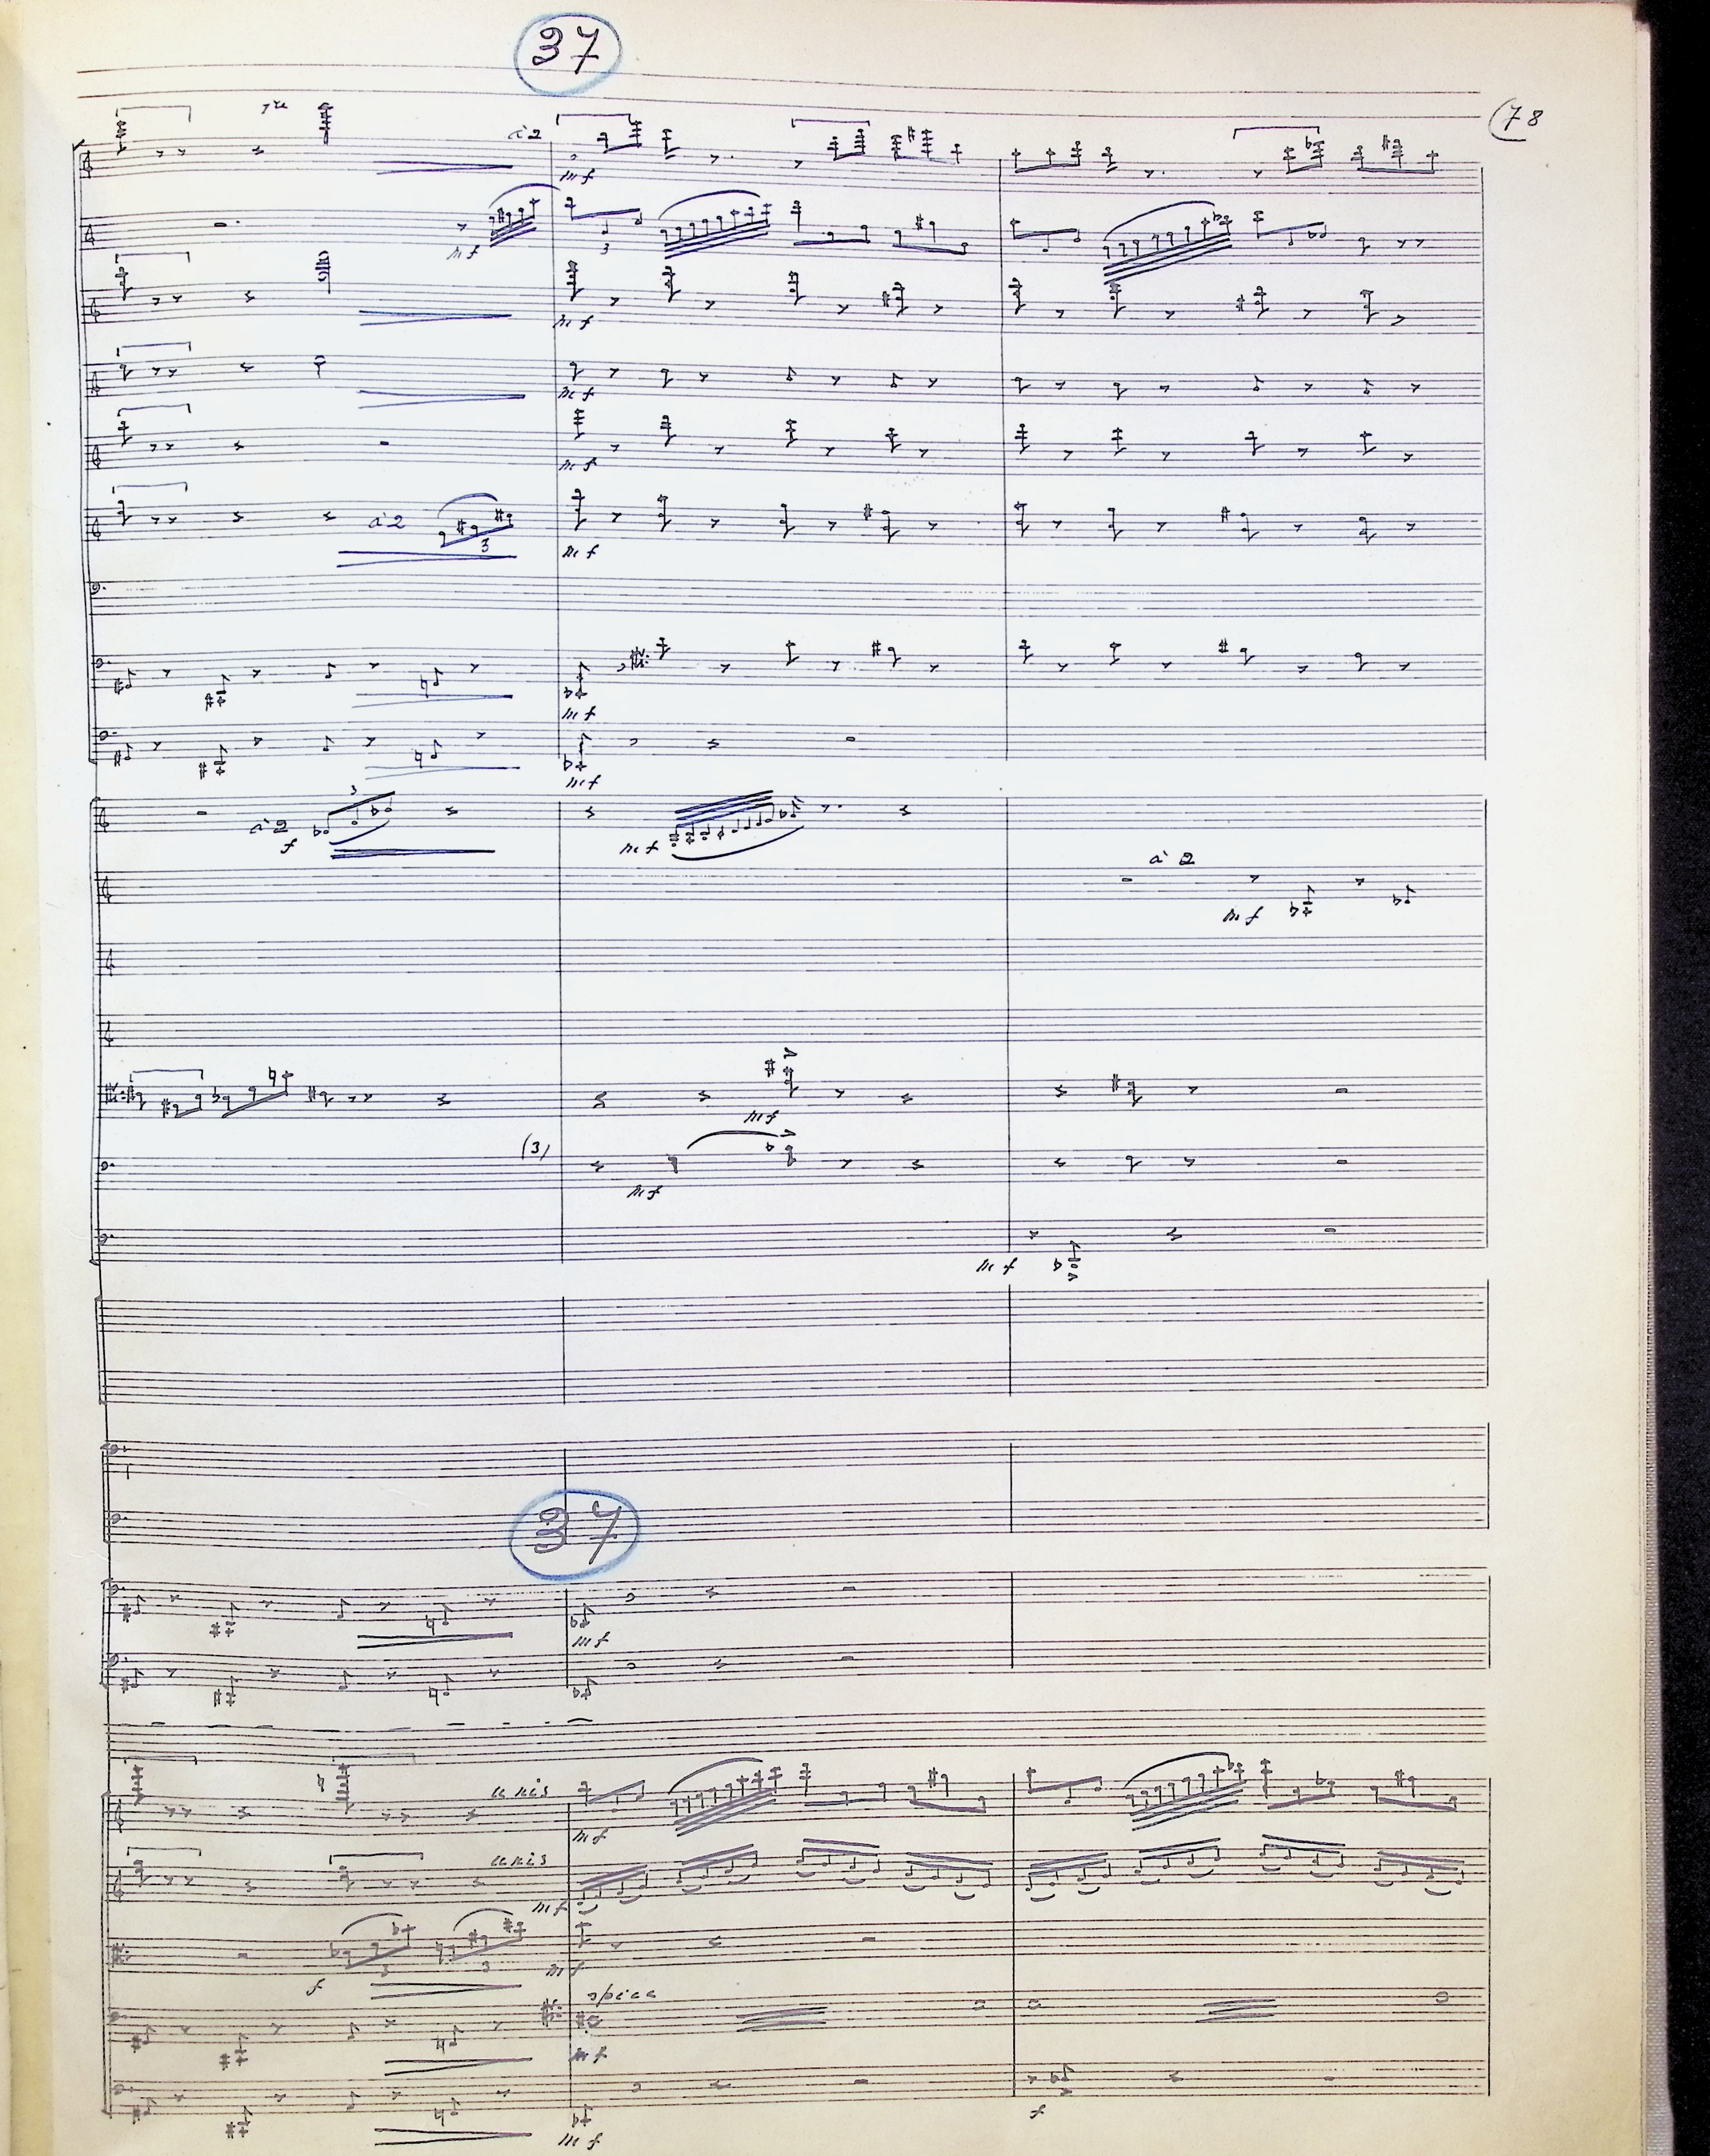 37
78
1re
à 2
mf
mf
mf
mf
mf
à 2
3
mf
3
mf
mf
3
à 2
f
mf
à 2
mf
mf
(3)
mf
mf
37
mf
unis
mf
unis
mf
f
3
3
mf
spicc
mf
f
mf